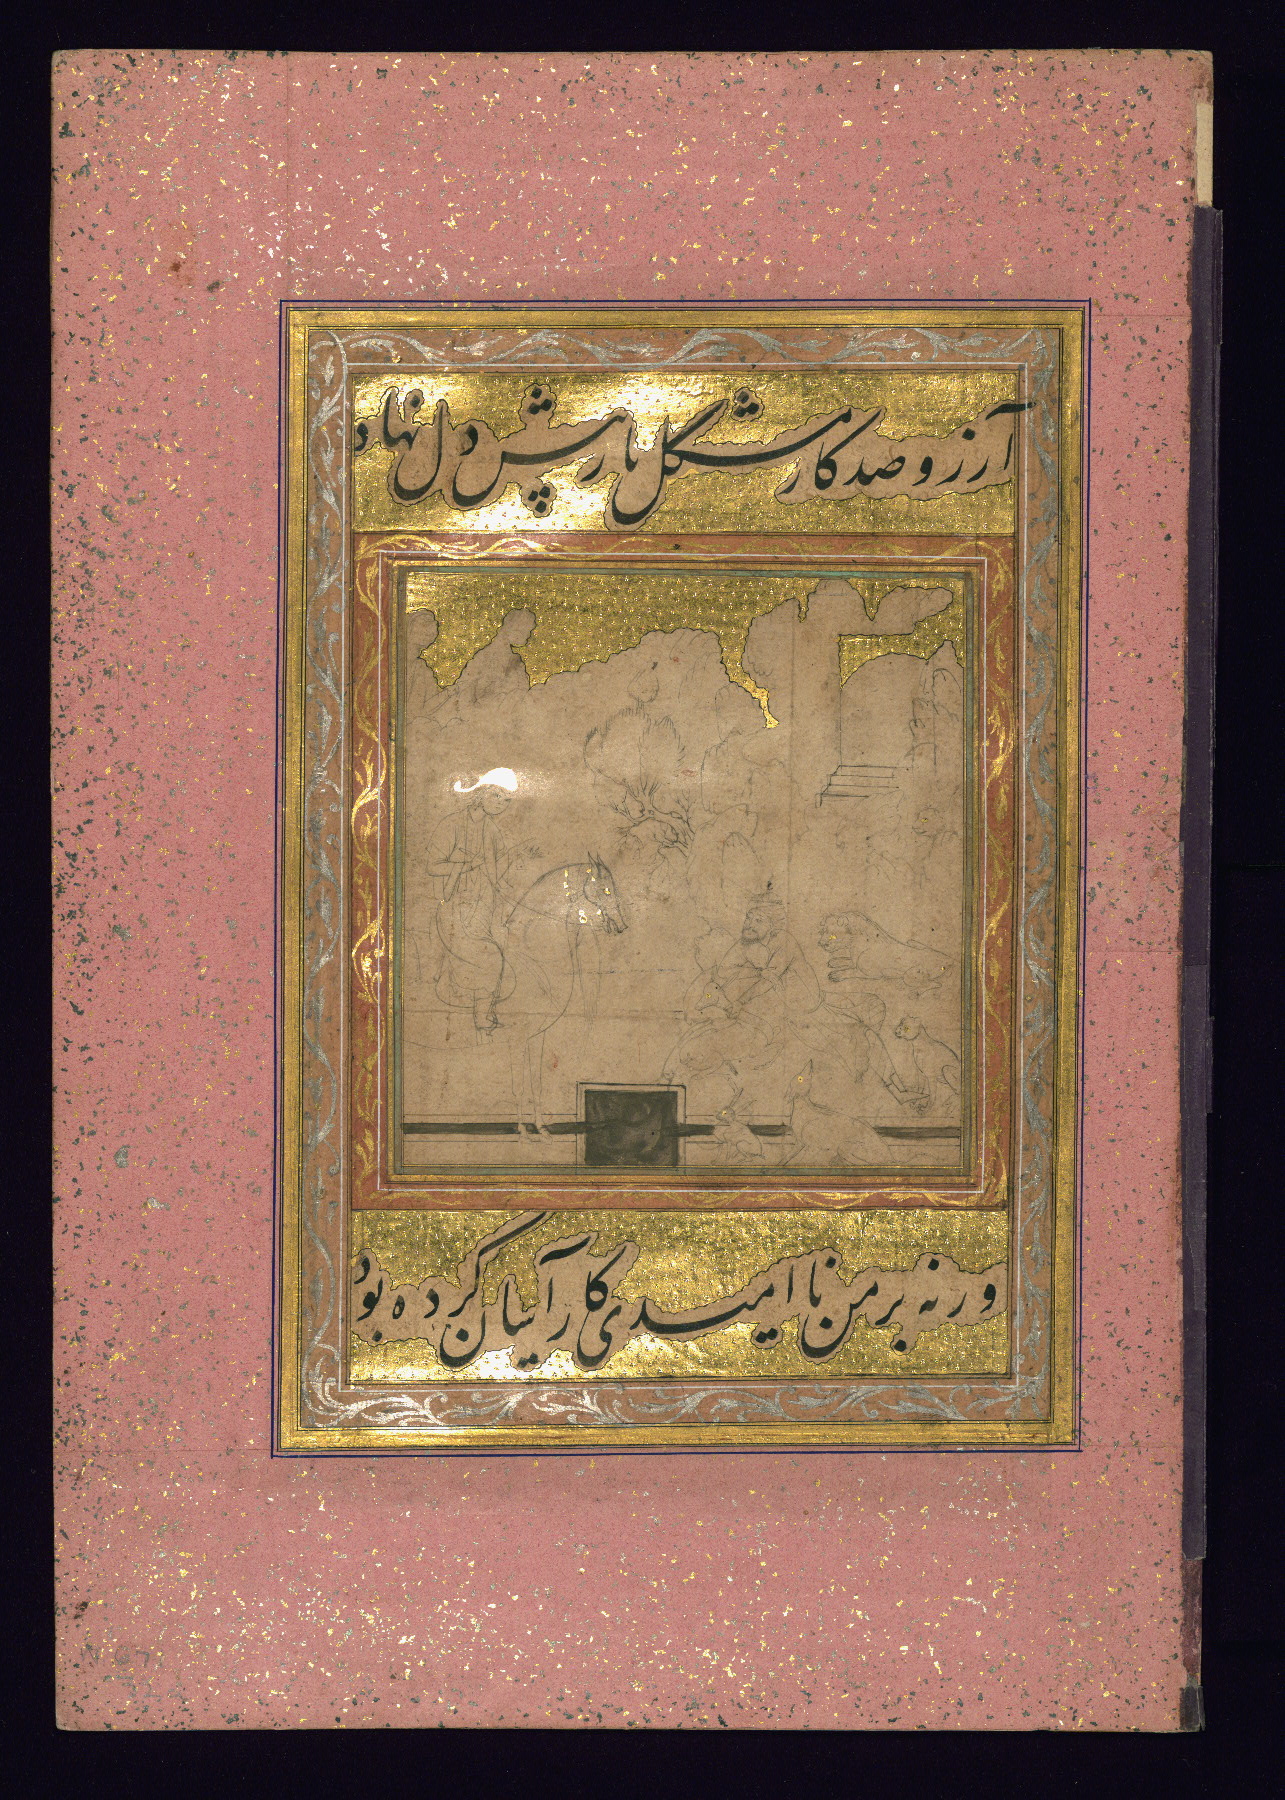 آرزو صد کار مشکل باز پیش دل نهاد
ورنه بر من ناامیدی کار آسان کرده بود